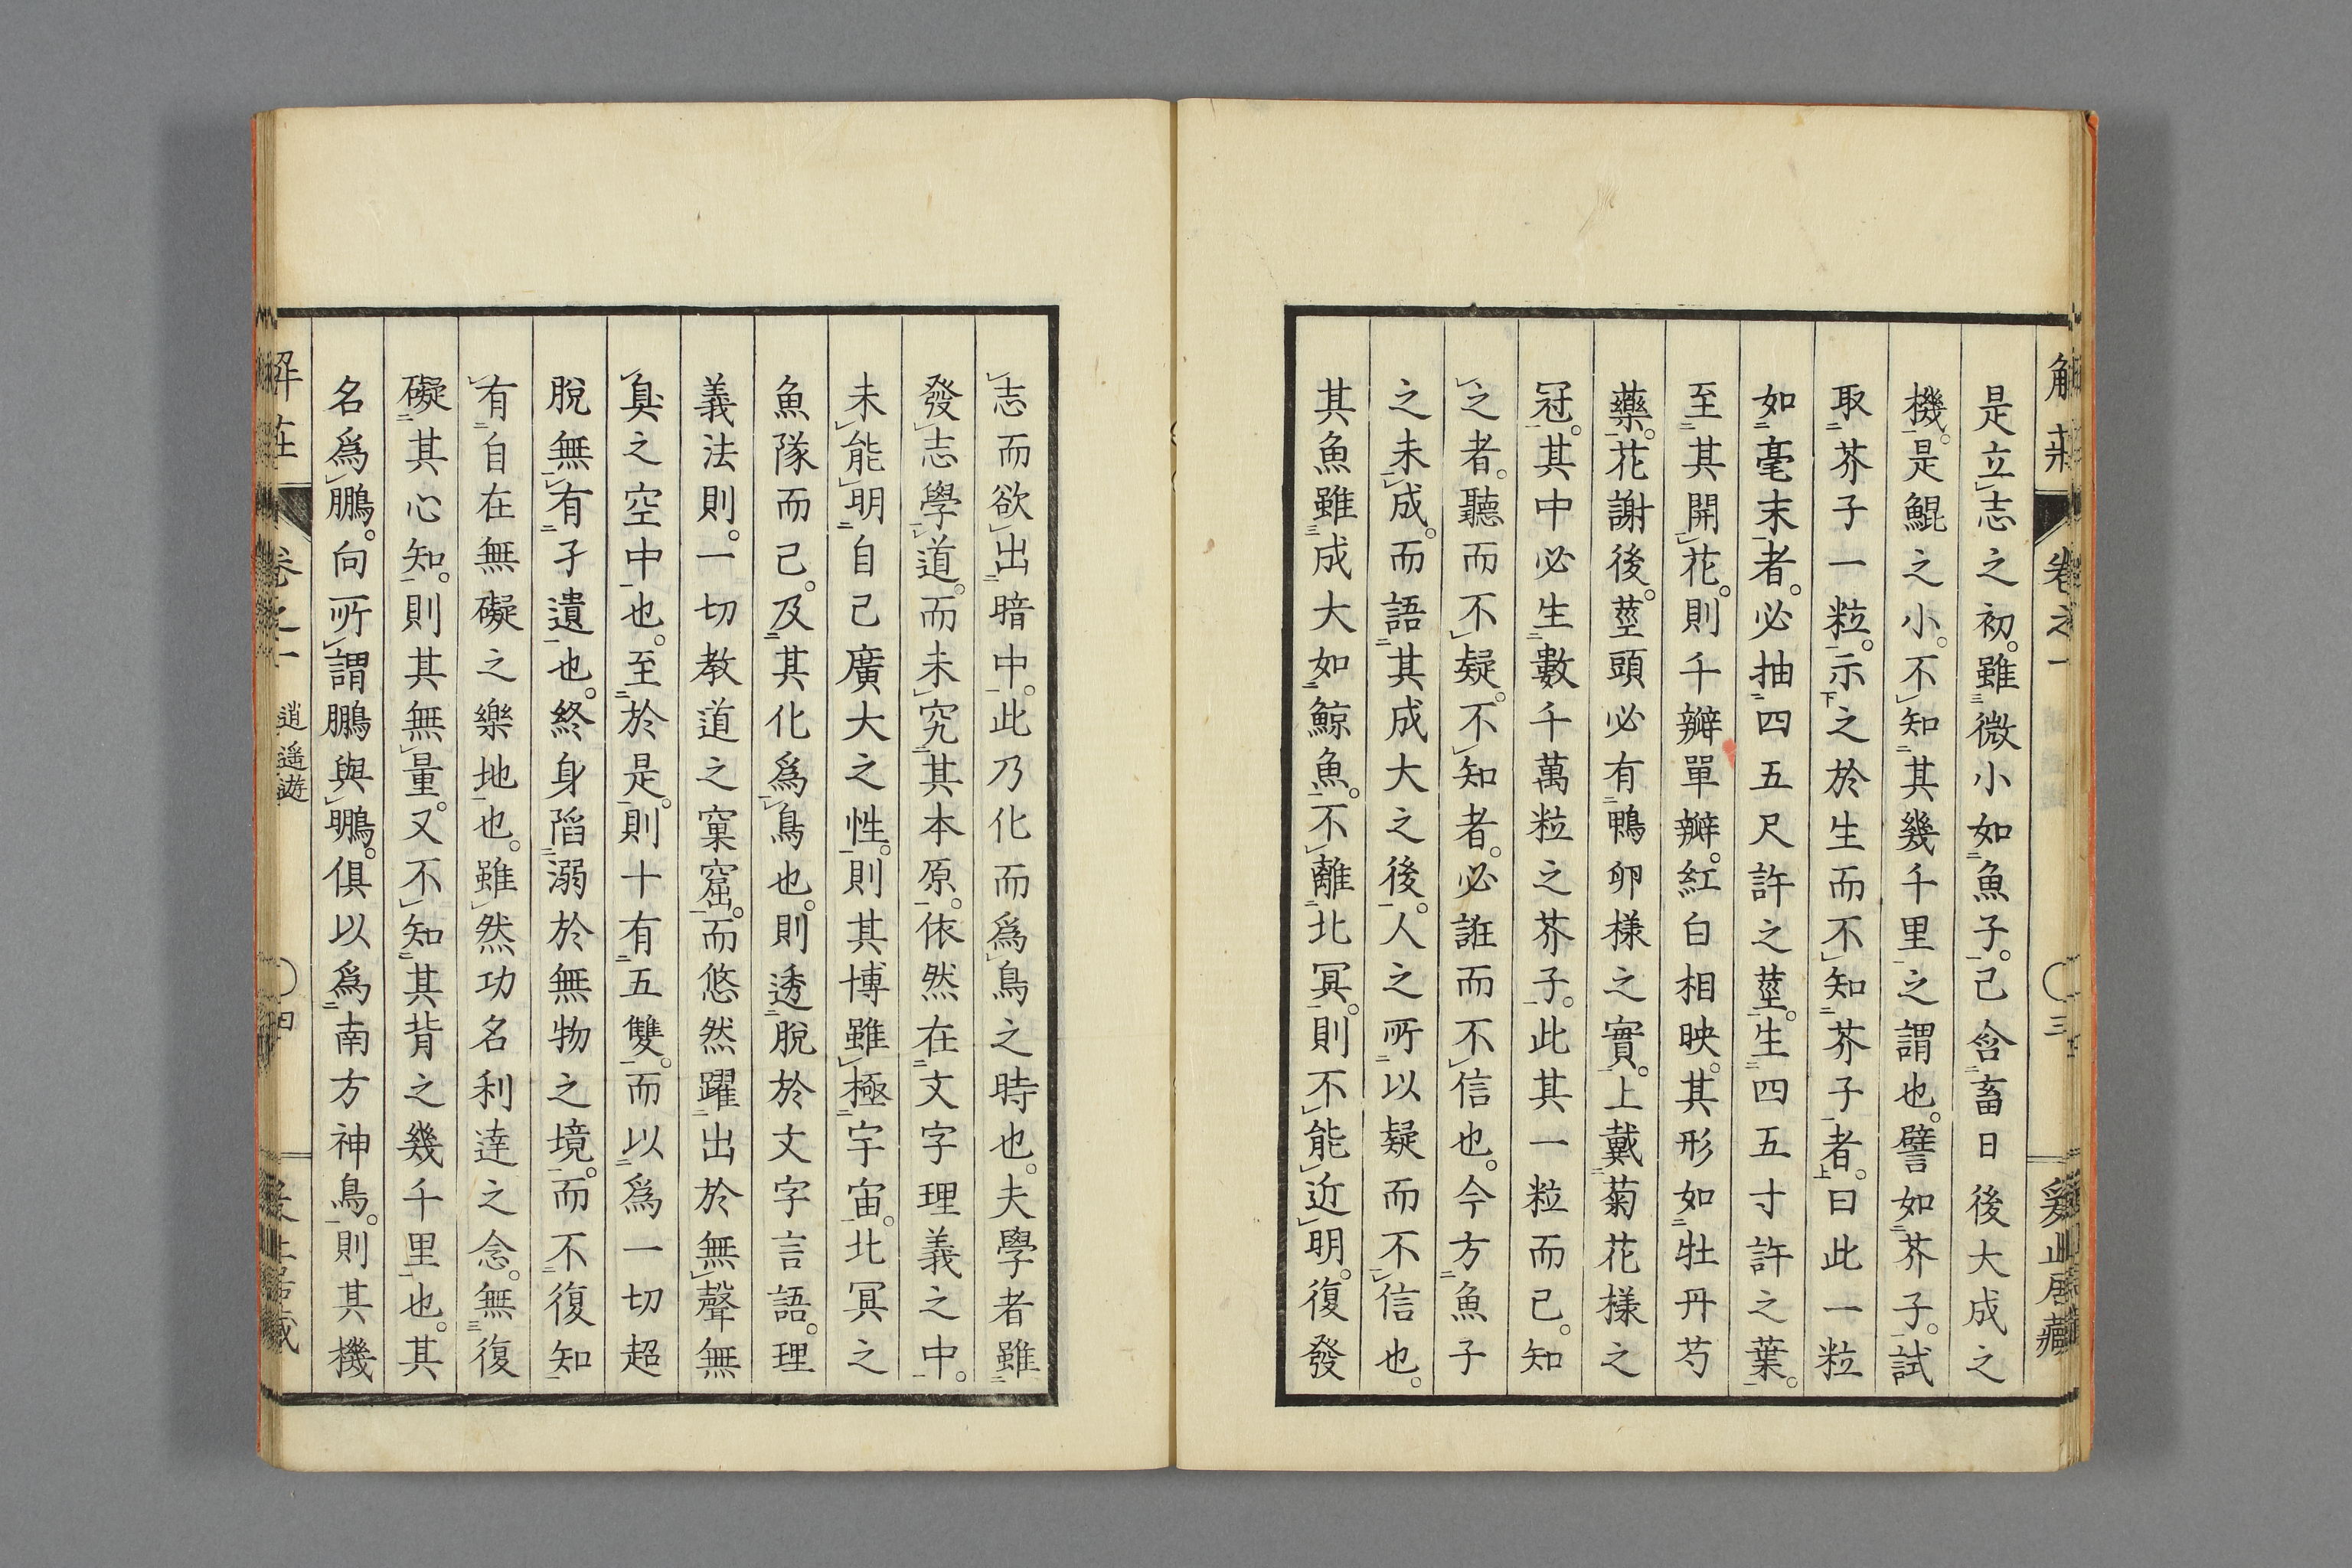 解莊 卷之一 三 爰止居藏
是立志之初。雖微小如魚子。已含畜日後大成之
機。是鯤之小。不知其幾千里之謂也。譬如芥子。試
取芥子一粒。示之於生而不知芥子者。曰此一粒
如毫末者。必抽四五尺許之莖。生四五寸許之葉。
至其開花。則千瓣單瓣。紅白相映。其形如牡丹芍
藥。花謝後。莖頭必有鴨卵樣之實。上戴菊花樣之
冠。其中必生數千萬粒之芥子。此其一粒而已。知
之者。聽而不疑。不知者。必誑而不信也。今方魚子
之未成。而語其成大之後。人之所以疑而不信也。
其魚雖成大如鯨魚。不離北冥。則不能近明。復發
志而欲出暗中。此乃化而爲鳥之時也。夫學者雖
發志學道。而未究其本原。依然在文字理義之中。
未能明自己廣大之性。則其博雖極宇宙。北冥之
魚隊而已。及其化爲鳥也。則透脫於文字言語。理
義法則。一切教道之窠窟。而悠然躍出於無聲無
臭之空中也。至於是。則十有五雙。而以爲一切超
脫無有孑遺也。終身陷溺於無物之境。而不復知
有自在無礙之樂地也。雖然功名利達之念。無復
礙其心知。則其無量。又不知其背之幾千里也。其
名爲鵬。向所謂鵬與鵬。俱以爲南方神鳥。則其機
解莊 卷之一 逍遙遊 四